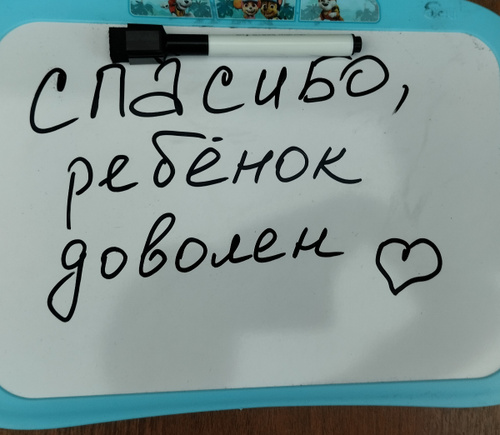 спасибо,
ребёнок
доволен